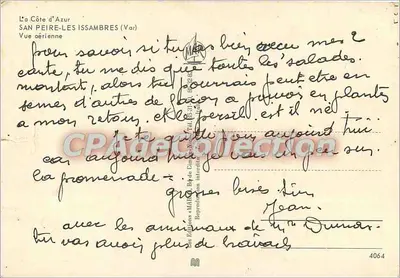 La Côte d'Azur
SAN PEIRE-LES ISSAMBRES (Var)
Vue aérienne
pour savoir si tu as bien reçu mes 2
carte, tu me dis que toute les salades.
montait, alors tu pourrais peut etre en
semer d'autres de façon a prevoir en plantes
a mon retour. et le persil est il né
Je te quitte pour aujourd'hui
car aujourd'hui je vais un peu sur
la promenade.
grosses bises
Jean.
avec les animaux de Mr Dumas
tu vas avoir plus de travail
MAR
CPADeCollection
4064